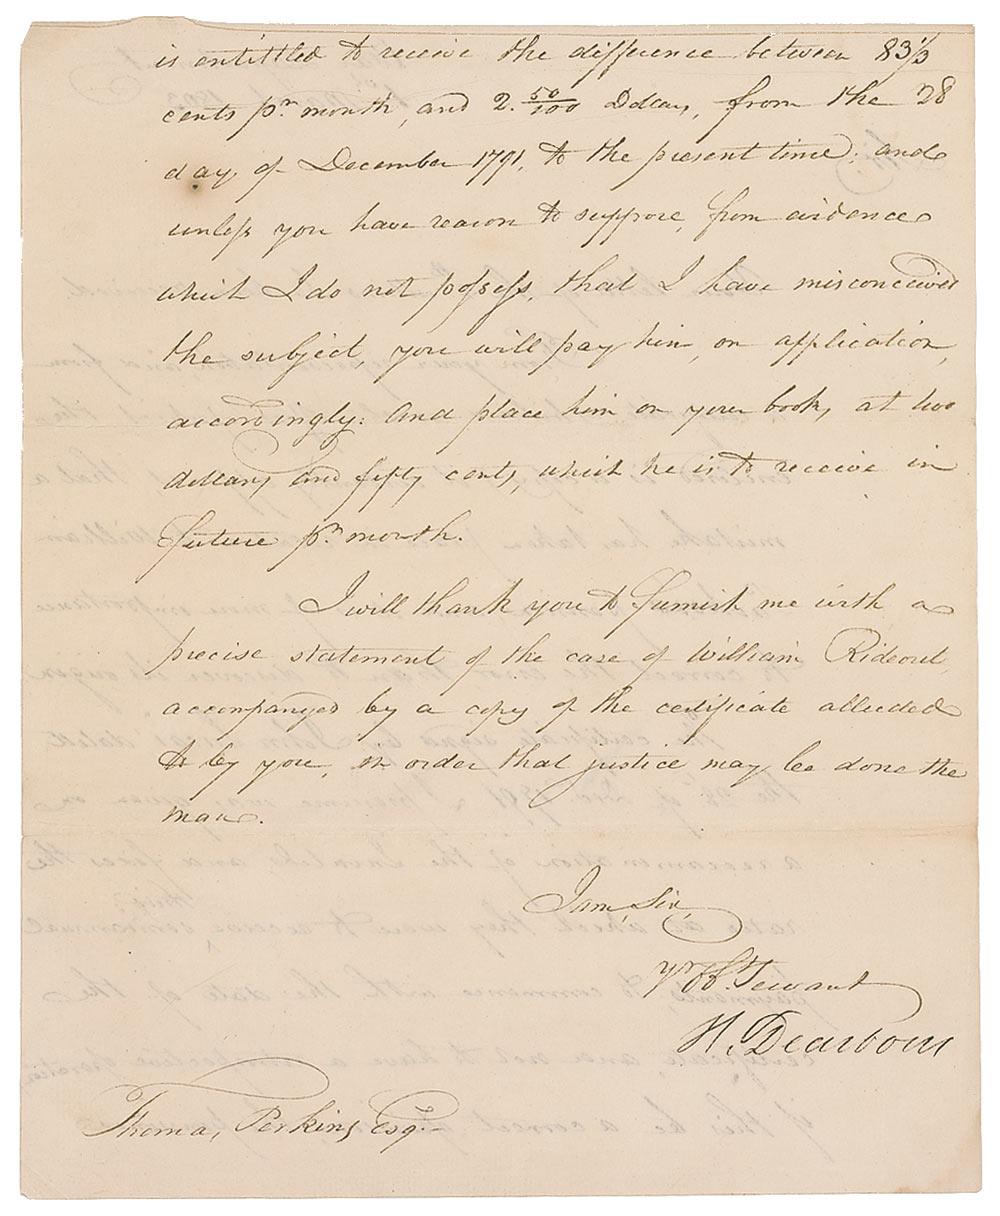 is entittled to receive the difference between 83 1/3
cents pr. month, and 2. 50/100 Dollars, from the 28
day, of December 1791, to the present time; and
unless you have reason to suppose, from evidence
which I do not possess, that I have misconceived
the subject, you will pay him, on application,
accordingly: and place him on your books, at two
dollars and fifty cents, which he is to receive in
future pr. month.
I will thank you to furnish me with a
precise statement of the case of William Rideout,
accompanyed by a copy of the certificate alluded
to by you, in order that justice may be done the
man.
I am, Sir,
Yr. Obt. Servant
H. Dearborn
Thomas Perkins Esqr.